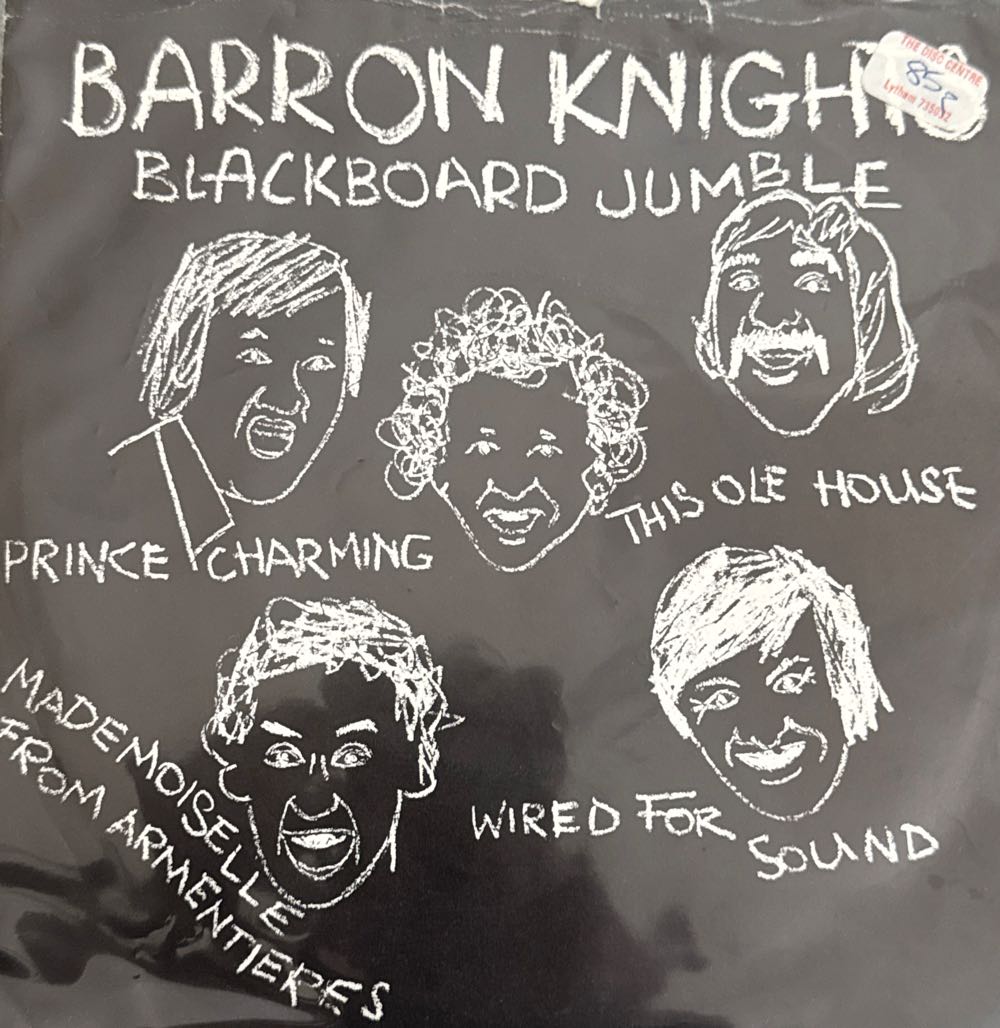 BARRON KNIGHTS
THE DISC CENTRE
85p
Lytham 735092
BLACKBOARD JUMBLE
THIS OLE HOUSE
PRINCE CHARMING
MADEMOISELLE
FROM ARMENTIERES
WIRED FOR
SOUND